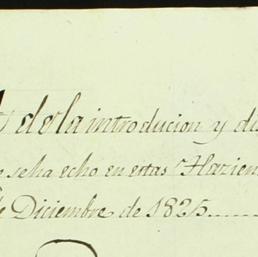 de la introducion y di
se ha echo en estas Hazien
de Diciembre de 1825